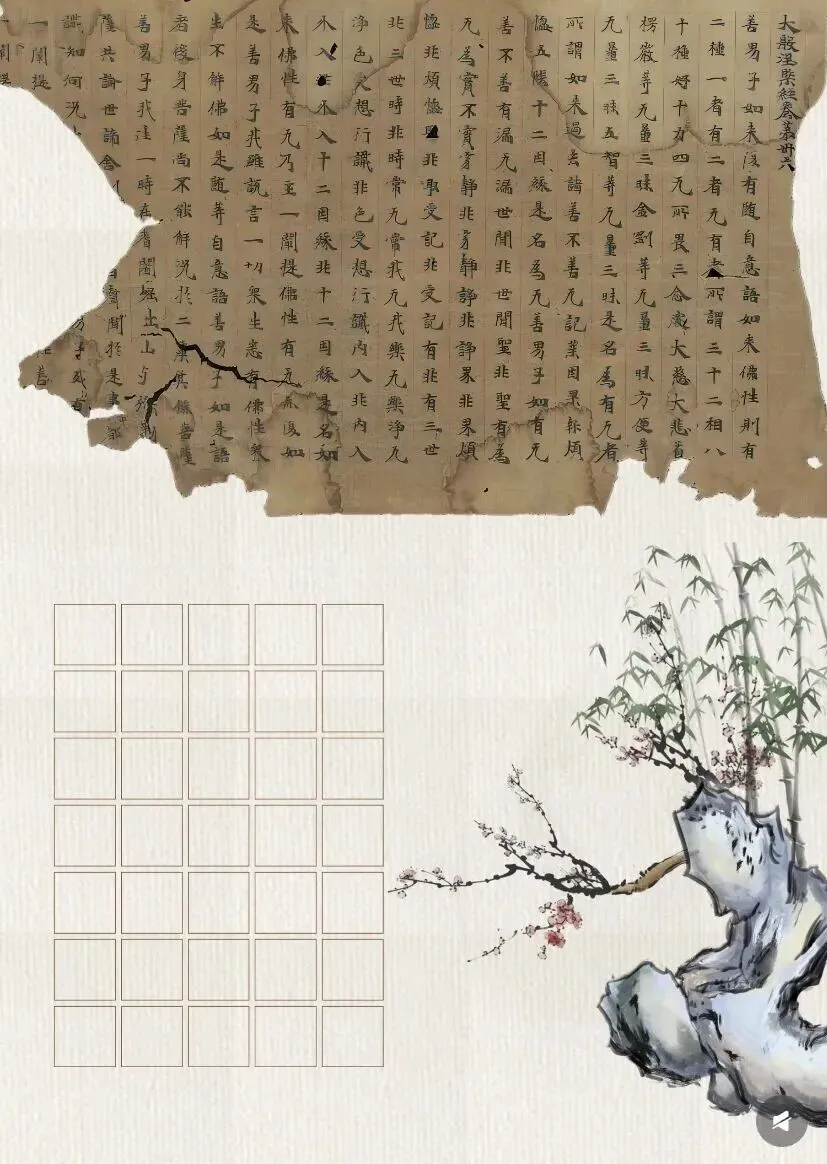 大般涅槃經卷第卅六
善男子如來復有隨自意語如來佛性則有
二種一者有二者无有者所謂三十二相八
十種好十力四无所畏三念處大慈大悲首
楞嚴等无量三昧金剛等无量三昧方便等
无量三昧五智等无量三昧是名為有无者
所謂如來過去諸善不善无記業因果報煩
惱五陰十二因緣是名為无善男子如有无
善不善有漏无漏世間非世間聖非聖有為
无為實不實寂靜非寂靜諍非諍界非界煩
惱非煩惱取非取受記非受記有非有三世
非三世時非時常无常我无我樂无樂淨无
淨色受想行識非色受想行識內入非內入
外入非外入十二因緣非十二因緣是名如
來佛性有无乃至一闡提佛性有无亦復如
是善男子我雖說言一切衆生悉有佛性衆
生不解佛如是隨等自意語善男子如是語
者後身菩薩尚不能解況於二乘其餘菩薩
善男子我往一時在耆闍堀山与弥勒
薩共論世諦舍利聲聞於是事都
識知何況
一闡提
闡提